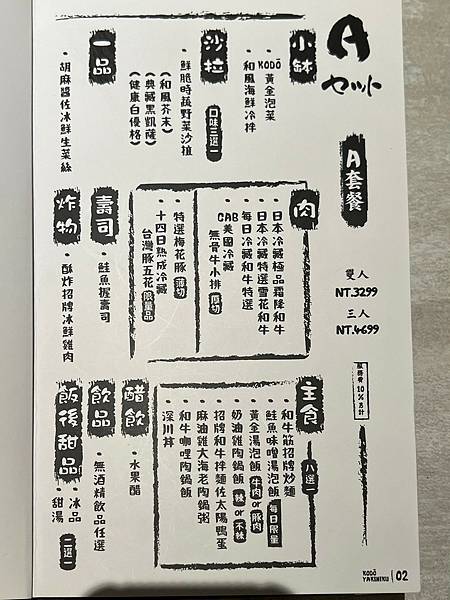 A
セット
A套餐
雙人
NT.3299
三人
NT.4699
服務費10%另計
小缽
・KODŌ黃金泡菜
・和風海鮮冷拌
沙拉
口味三選一
・鮮脆時蔬野菜沙拉
(和風芥末)
(典藏黑凱薩)
(健康白優格)
一品
・胡麻醬佐冰鮮生菜絲
肉
・日本冷藏極品霜降和牛
・日本冷藏特選雪花和牛
・每日冷藏和牛特選
・CAB美國冷藏
無骨牛小排 厚切
・特選梅花豚 薄切
・十四日熟成冷藏
台灣豚五花 限量品
壽司
・鮭魚握壽司
炸物
・酥炸招牌冰鮮雞肉
主食
八選一
・和牛筋招牌炒麵
・鮭魚味噌湯泡飯 每日限量
・黃金湯泡飯 牛肉or豚肉
・奶油雞陶鍋飯 辣or不辣
・招牌和牛拌麵佐太陽鴨蛋
・麻油雞大海老陶鍋粥
・和牛咖哩陶鍋飯
・深川丼
醋飲
・水果醋
飲品
・無酒精飲品任選
飯後甜品
・冰品
・甜湯
二選一
KODŌ
YAKINIKU
02